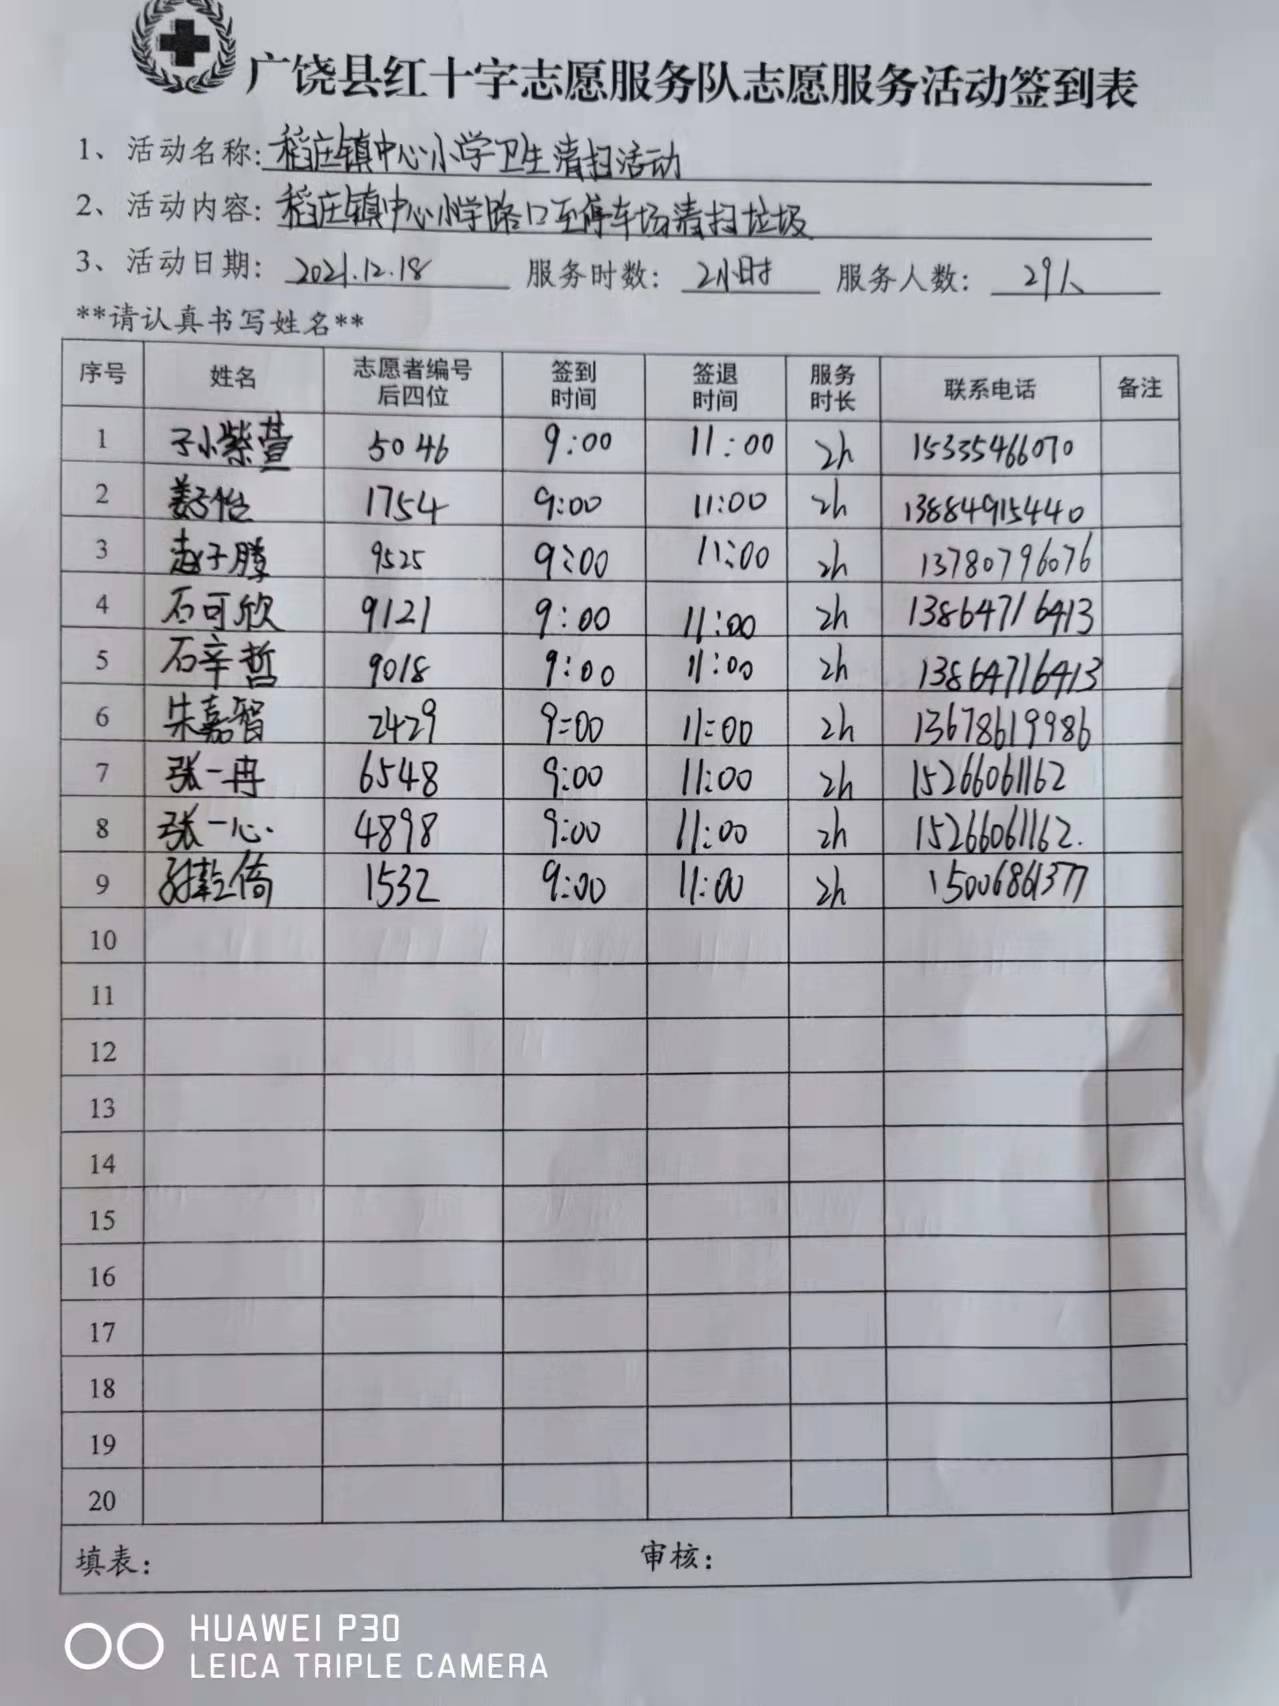 广饶县红十字志愿服务队志愿服务活动签到表
1、活动名称:稻庄镇中心小学卫生清扫活动
2、活动内容:稻庄镇中心小学路口至停车场清扫垃圾
3、活动日期: 2021.12.18 服务时数: 2小时 服务人数: 29人
**请认真书写姓名**
序号 姓名 志愿者编号后四位 签到时间 签退时间 服务时长 联系电话 备注
1 孙紫萱 5046 9:00 11:00 2h 15335466070
2 姜子怡 1754 9:00 11:00 2h 13884915440
3 赵子腾 9525 9:00 11:00 2h 13780796076
4 石可欣 9121 9:00 11:00 2h 13864716413
5 石辛哲 9018 9:00 11:00 2h 13864716413
6 朱嘉智 2429 9:00 11:00 2h 13678619986
7 张一冉 6548 9:00 11:00 2h 15266061162
8 张一心 4898 9:00 11:00 2h 15266061162.
9 1532 9:00 11:00 2h 15006861377
10
11
12
13
14
15
16
17
18
19
20
填表: 审核:
HUAWEI P30
LEICA TRIPLE CAMERA